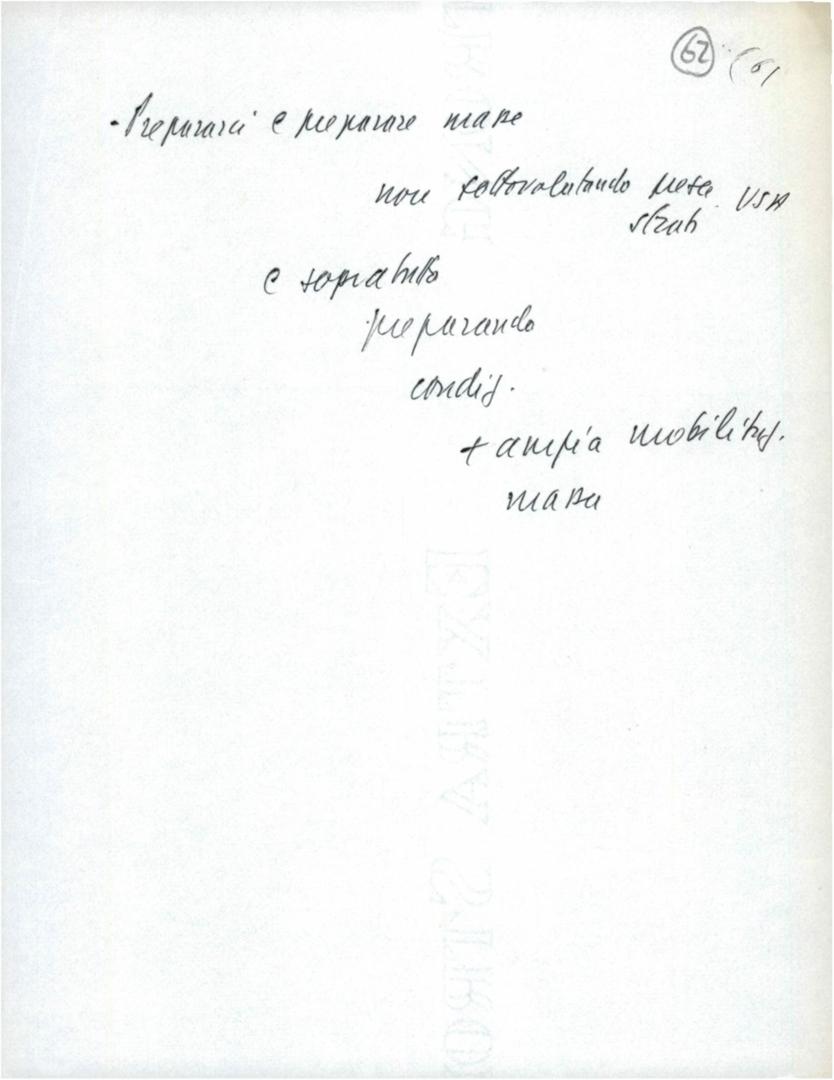 62 (61
- Prepararci e preparare masse
non sottovalutando presa USA
strati
e soprattutto
preparando
condiz.
+ ampia mobilitaz.
massa
EXTRA STRO